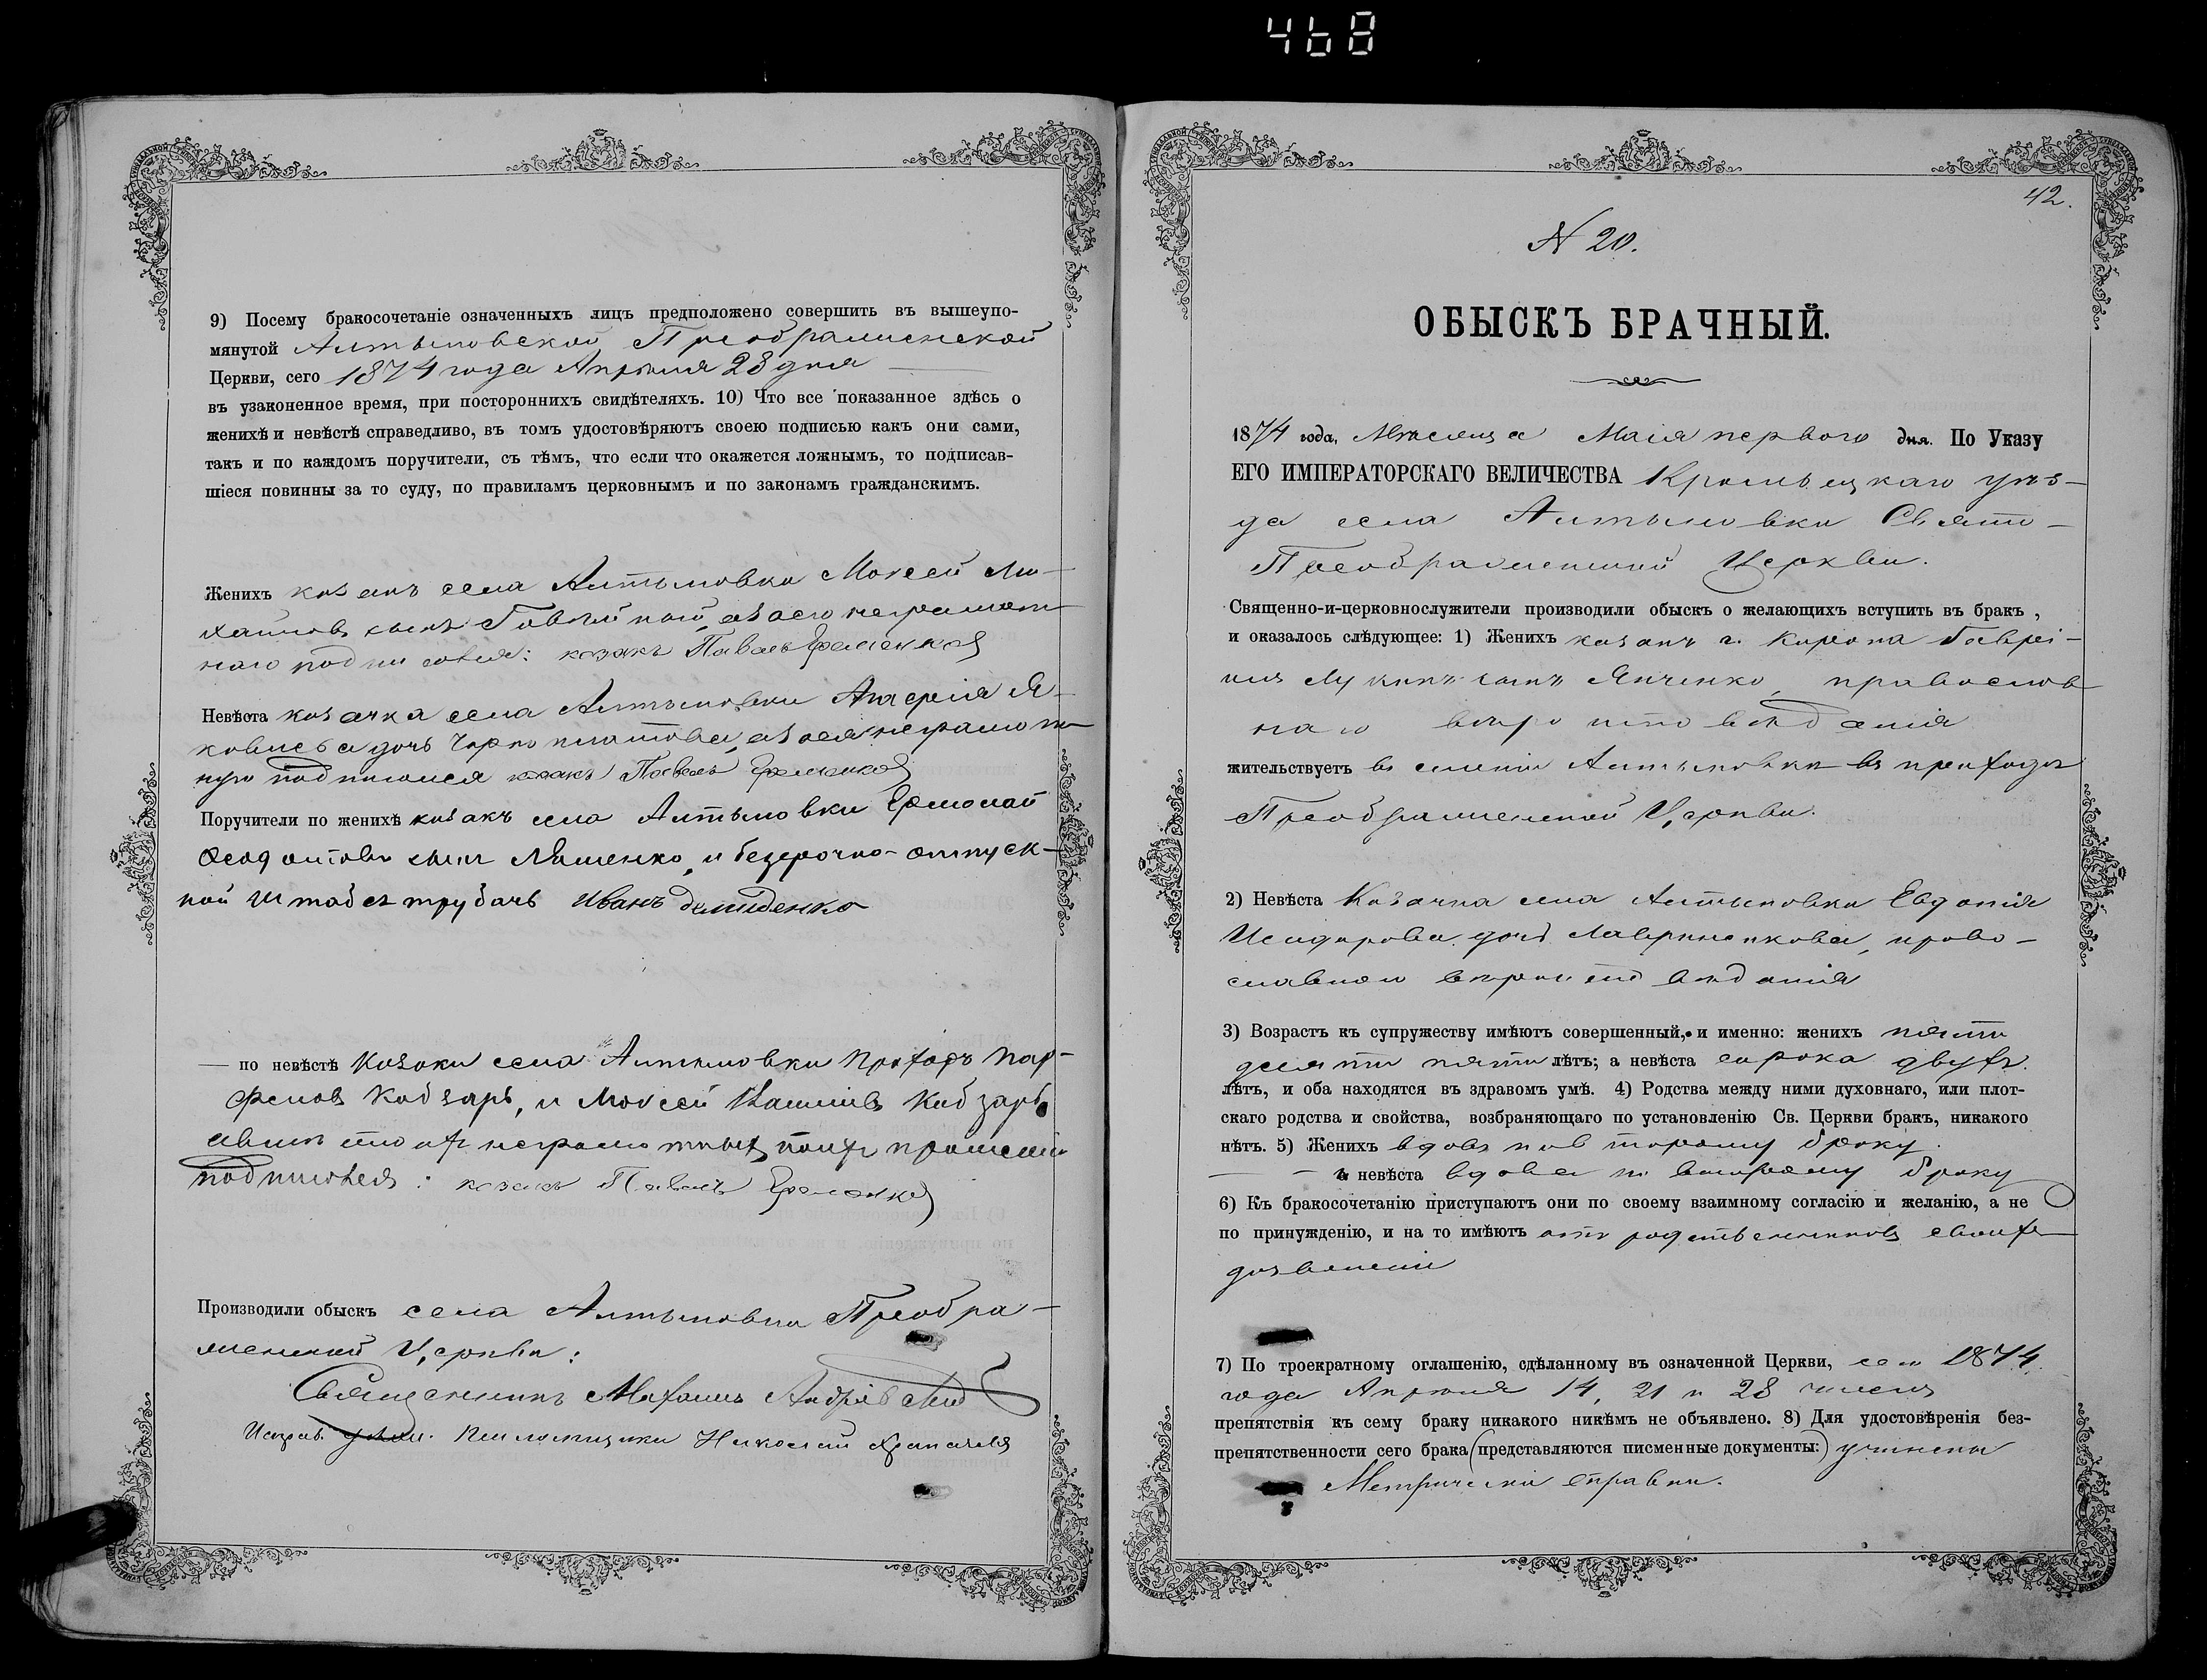 468
9) Посему бракосочетаніе означенныхъ лицъ предположено совершить въ вышеупо-
мянутой Алтыновской Преображенской
Церкви, сего 1874 года Апрѣля 28 дня
въ узаконенное время, при постороннихъ свидѣтеляхъ. 10) Что все показанное здѣсь о
женихѣ и невѣстѣ справедливо, въ томъ удостовѣряютъ своею подписью какъ они сами,
такъ и по каждомъ поручители, съ тѣмъ, что если что окажется ложнымъ, то подписав-
шіеся повинны за то суду, по правиламъ церковнымъ и по законамъ гражданскимъ.
Женихъ козакъ села Алтыновки Моисей Ми-
хаиловъ сынъ а за его неграмот-
наго подписался: козакъ Павелъ Ярёменко
Невѣста козачка села Алтыновки Я-
ковлева дочь а за нея неграмот-
ную подписался козакъ Павелъ
Поручители по женихѣ козакъ села Алтыновки Ермолай
Феодотовъ сынъ Ляшенко, и безсрочно-отпуск-
ной Штабсъ трубачъ Иванъ Демиденко
— по невѣстѣ Козаки села Алтыновки Прохоръ Пар-
феновъ Кобзарь, и Моисей Кобзарь,
а вмѣсто ихъ неграмотныхъ по ихъ прошенію
подписался: козакъ Павелъ
Производили обыскъ села Алтыновки Преобра-
женской Церкви:
Священникъ Михаилъ
Исправ. Николай
42.
N 20.
ОБЫСКЪ БРАЧНЫЙ.
1874 года, Мѣсяца Маія перваго дня. По Указу
ЕГО ИМПЕРАТОРСКАГО ВЕЛИЧЕСТВА Кролевецкаго уѣз-
да села Алтыновки Свято-
Преображенской Церкви.
Священно-и-церковнослужители производили обыскъ о желающихъ вступить въ бракъ,
и оказалось слѣдующее: 1) Женихъ козакъ г. Коропа Гаврі-
илъ Лукинъ сынъ Янченко, православ-
наго вѣроисповѣданія
жительствуетъ въ селеніи Алтыновки въ приходѣ
Преображенской Церкви.
2) Невѣста Козачка села Алтыновки Евдокія
Исидорова дочь Лавриненкова, право-
славнаго вѣроисповѣданія
3) Возрастъ къ супружеству имѣютъ совершенный, и именно: женихъ пяти
десяти пяти лѣтъ; а невѣста сорока двухъ
лѣтъ, и оба находятся въ здравомъ умѣ. 4) Родства между ними духовнаго, или плот-
скаго родства и свойства, возбраняющаго по установленію Св. Церкви бракъ, никакого
нѣтъ. 5) Женихъ вдовъ по второму браку
а невѣста вдова по второму браку
6) Къ бракосочетанію приступаютъ они по своему взаимному согласію и желанію, а не
по принужденію, и на то имѣютъ отъ родственниковъ своихъ
дозволеніе
7) По троекратному оглашенію, сдѣланному въ означенной Церкви, сего 1874
года Апрѣля 14, 21 и 28 числъ
препятствія къ сему браку никакого никѣмъ не объявлено. 8) Для удостовѣренія без-
препятственности сего брака (представляются писменные документы:) учинены
Метрическія справки.